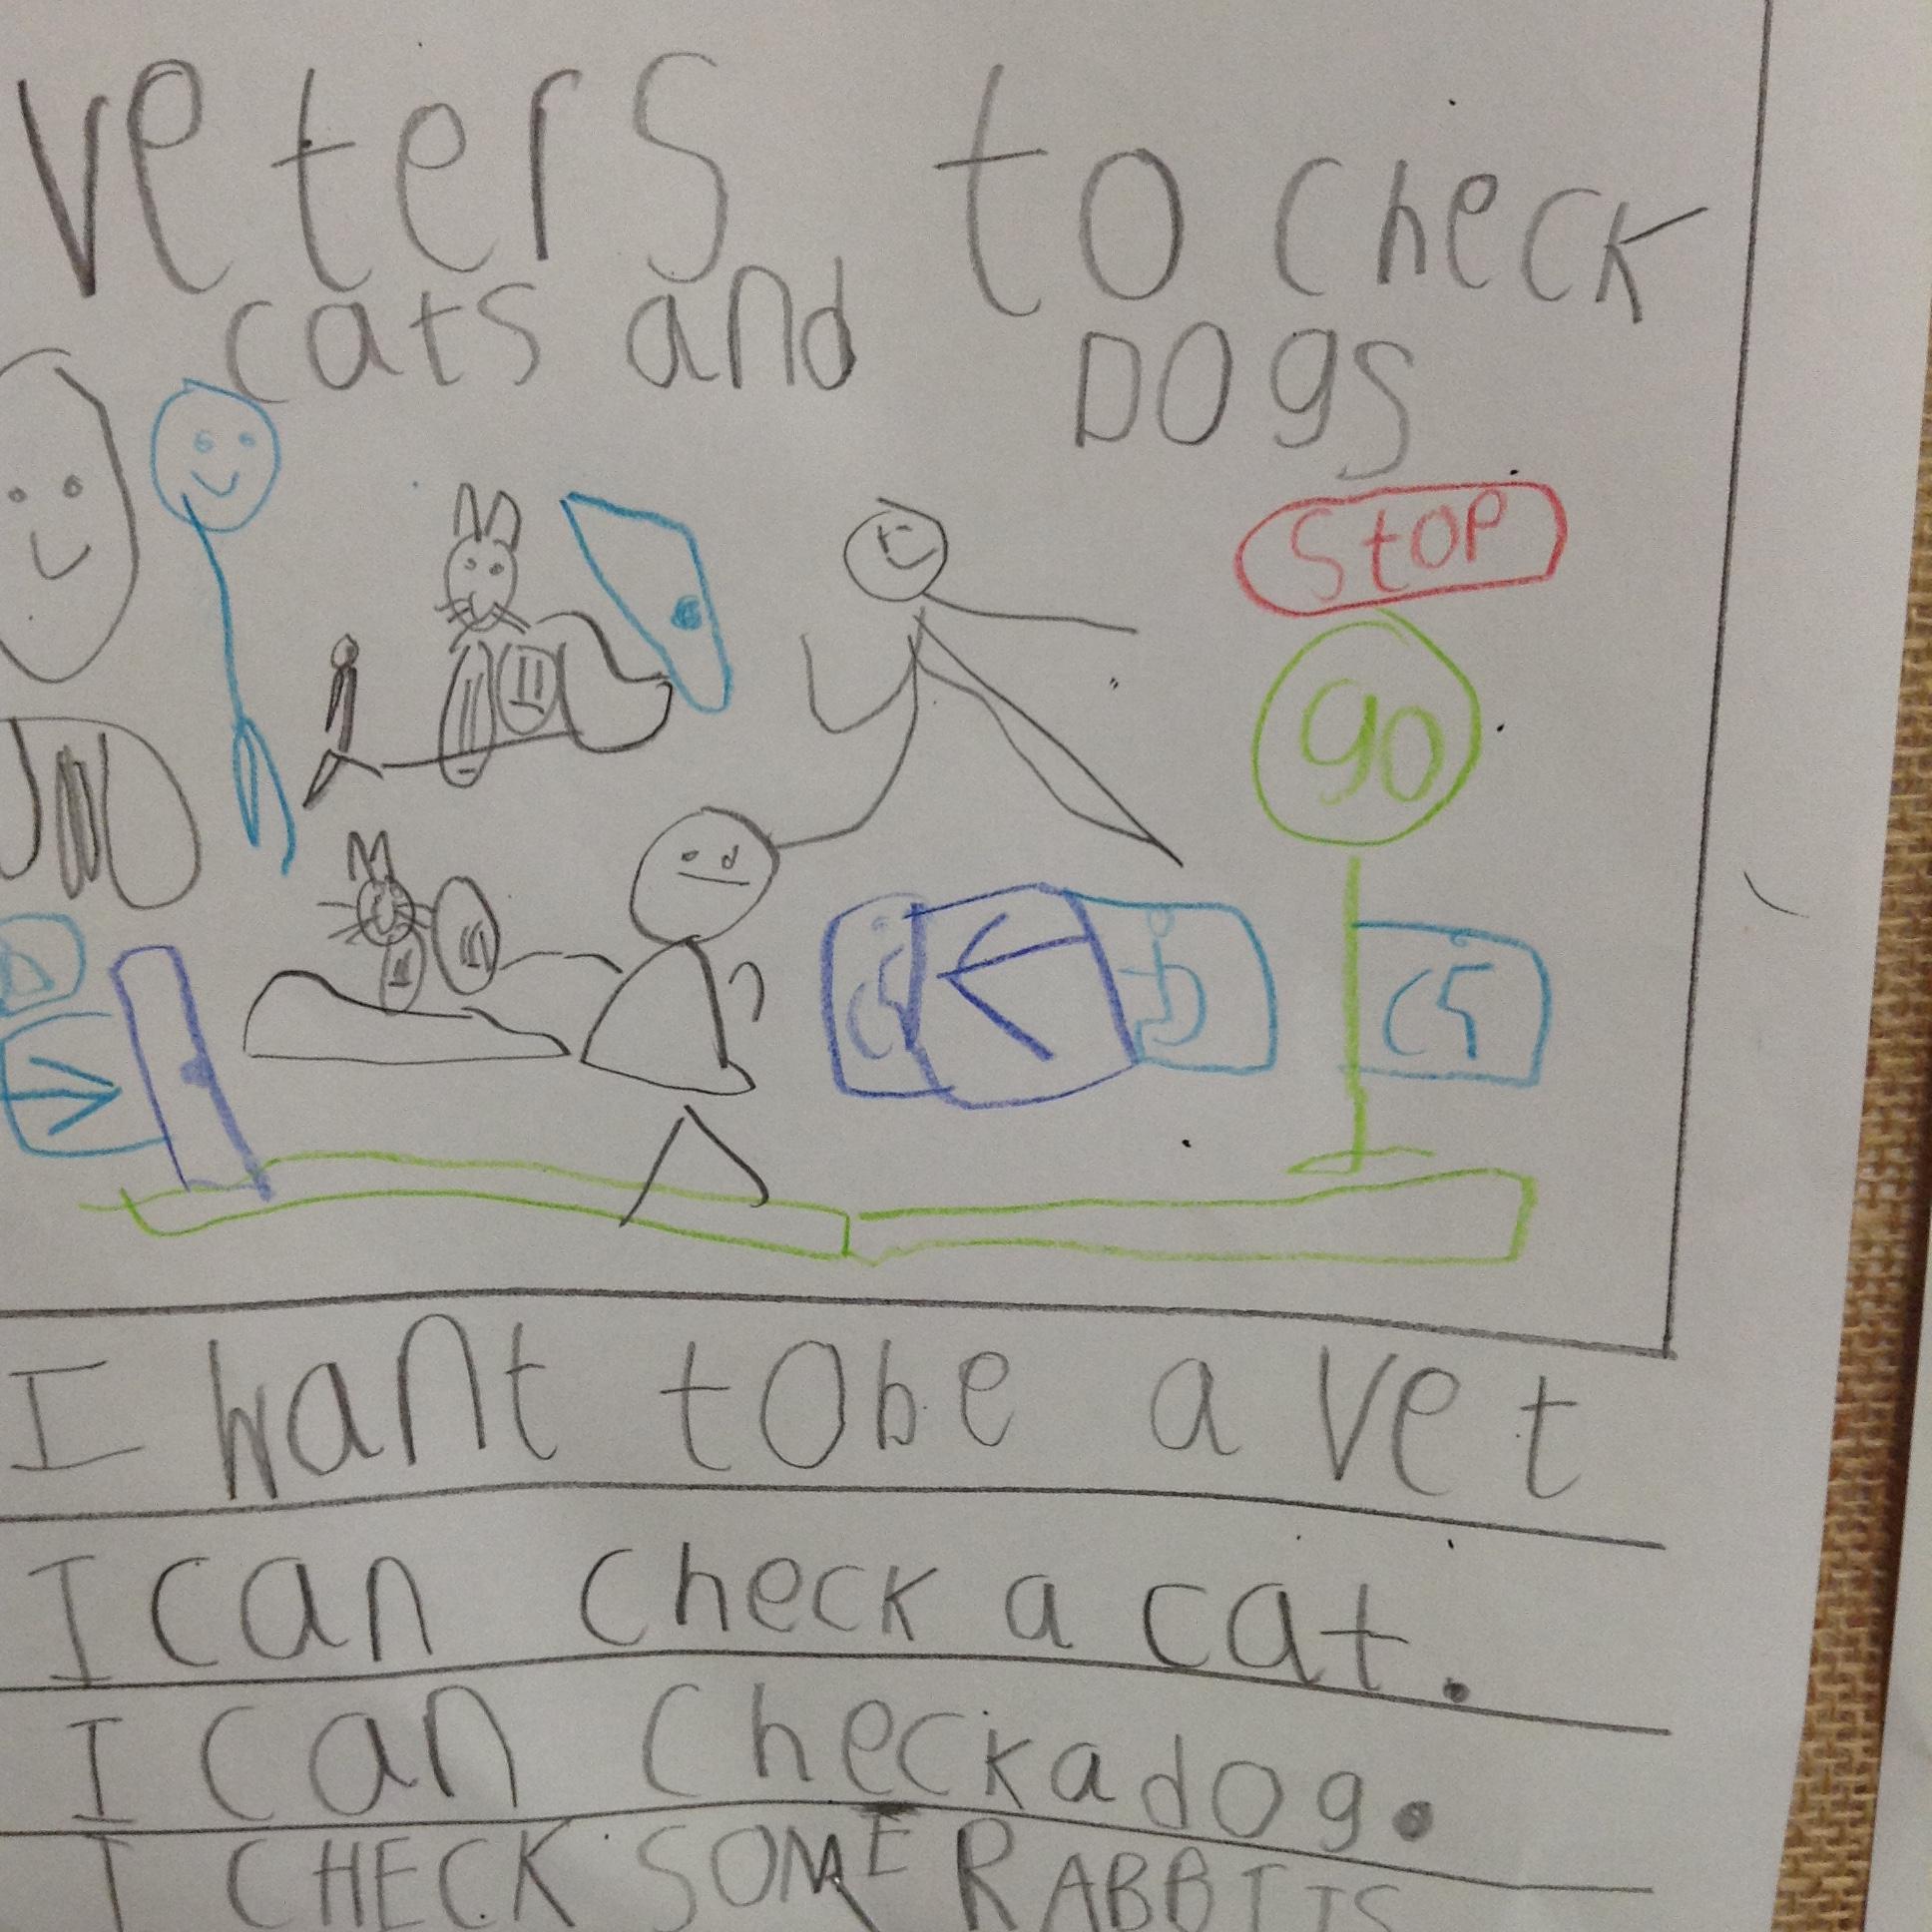 veters to check
cats and DOgs
StOP
go
I want tobe a vet
I can check a cat.
I can checkadog.
I CHECK SOME RABBITS